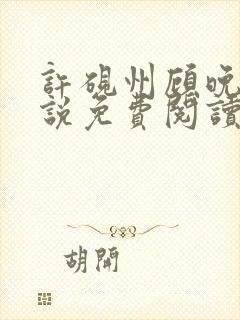 許硯州顧晚
說免費閱讀
胡開